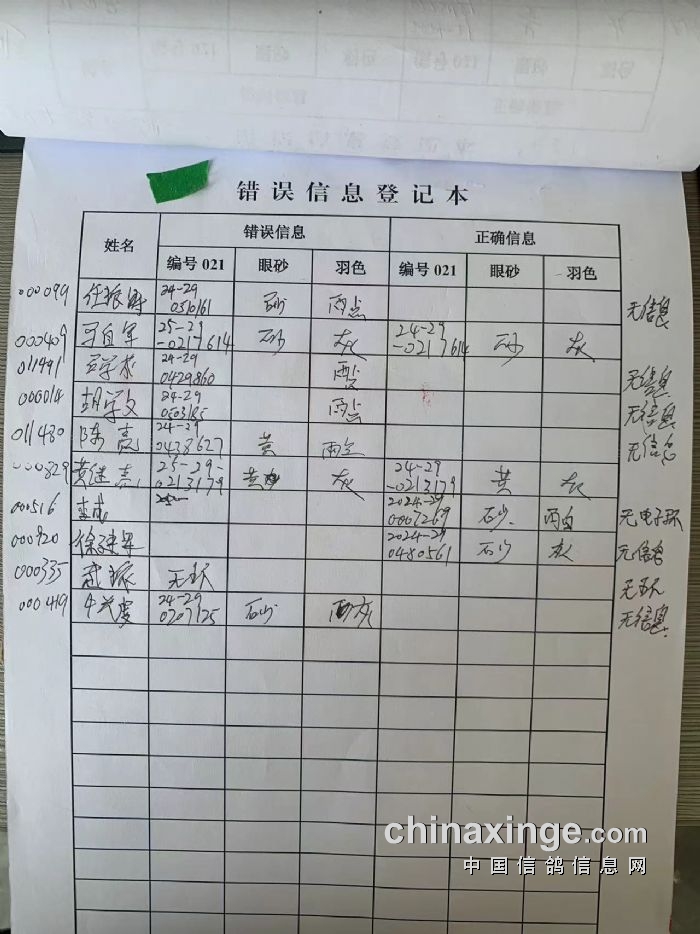 错误信息登记本
姓名 错误信息 正确信息
编号021 眼砂 羽色 编号021 眼砂 羽色
000099 任振 24-29 0310161 砂 雨点 无信息
000409 自军 25-29 -0217614 砂 灰 24-29 -0217614 砂 灰
011491 学 24-29 0429860 雨点 无信息
000014 胡学文 24-29 0503185 雨点 无信息
011480 陈亮 24-29 0438627 黄 雨点 无信息
000829 黄继 25-29- 0213179 黄 灰 24-29 -0213179 黄 灰
000516 2024-29 0007269 砂 雨白 无电子环
000920 徐建军 2024-29 0480561 砂 灰 无信息
000335 武 无环 无环
000419 牛兴 24-29 0207125 砂 雨灰 无信息
chinaxinge.com
中国信鸽信息网